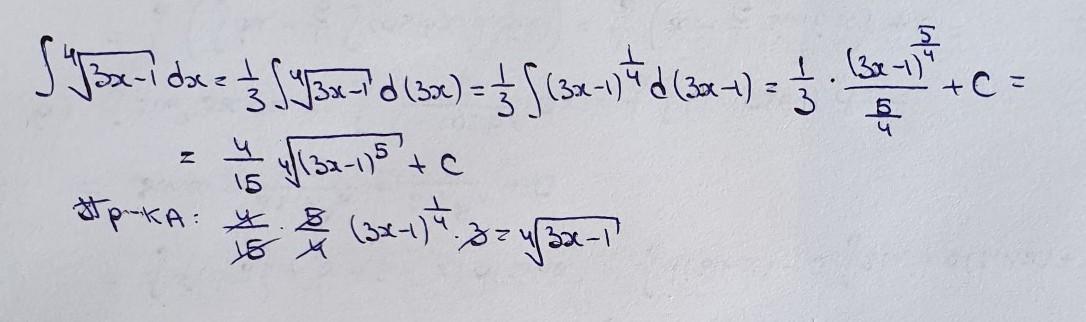 ∫ ∜(3x-1) dx = 1/3 ∫ ∜(3x-1) d(3x) = 1/3 ∫ (3x-1)^(1/4) d(3x-1) = 1/3 · (3x-1)^(5/4) / (5/4) + C =
= 4/15 ∜((3x-1)^5) + C
Пр-кА: 4/15 · 5/4 (3x-1)^(1/4) · 3 = ∜(3x-1)